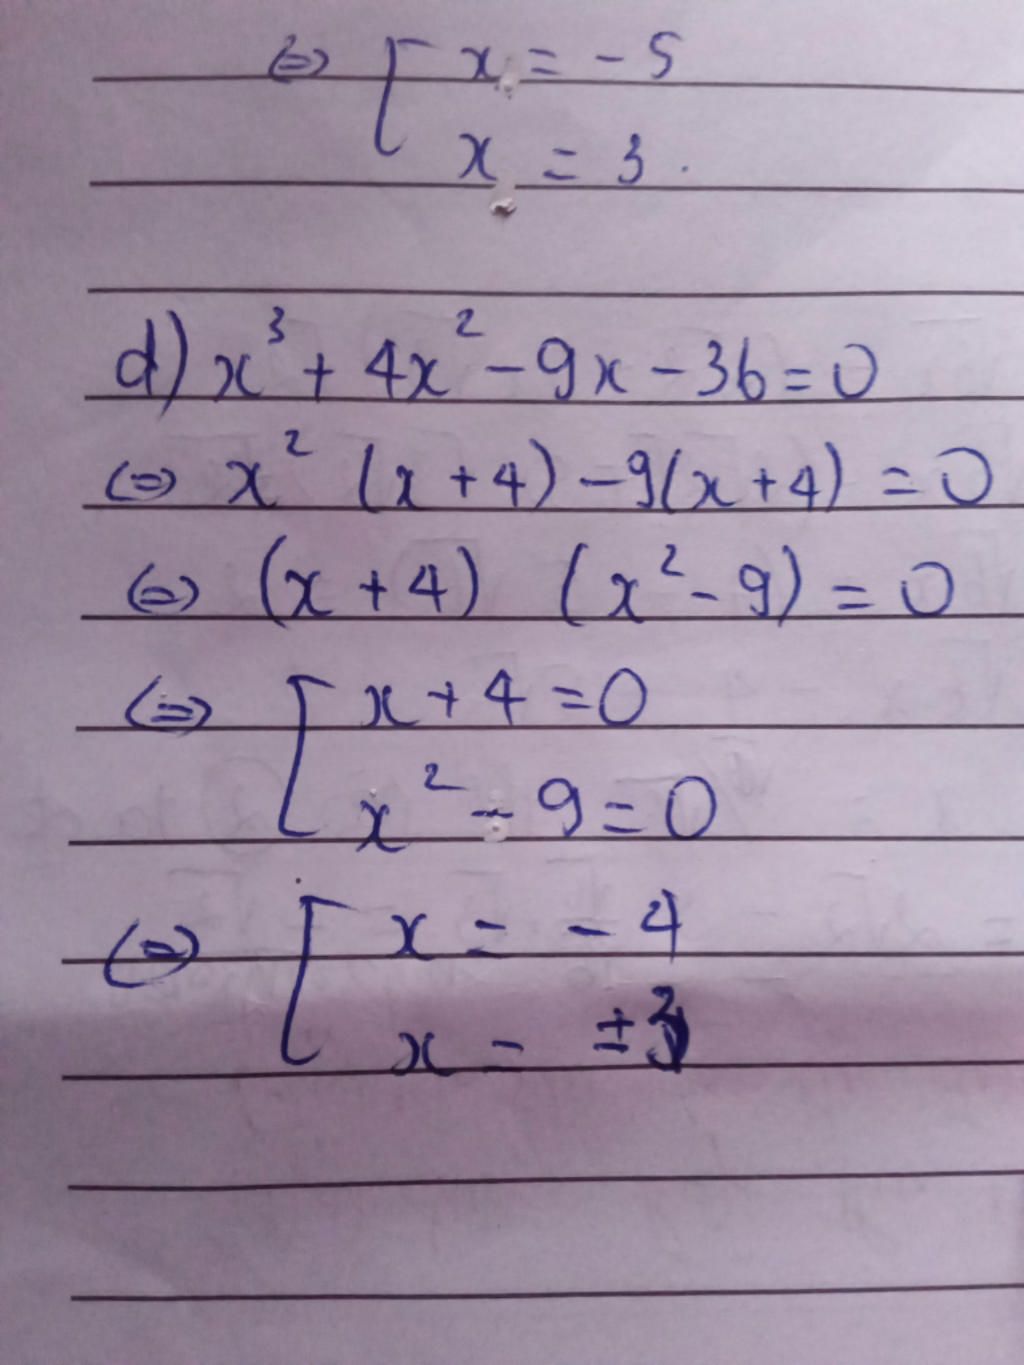 (=) [ x = -5
x = 3.
d) x³ + 4x² - 9x - 36 = 0
(=) x² (x + 4) - 9(x + 4) = 0
(=) (x + 4) (x² - 9) = 0
(=) [ x + 4 = 0
x² - 9 = 0
(=) [ x = - 4
x = ± 3